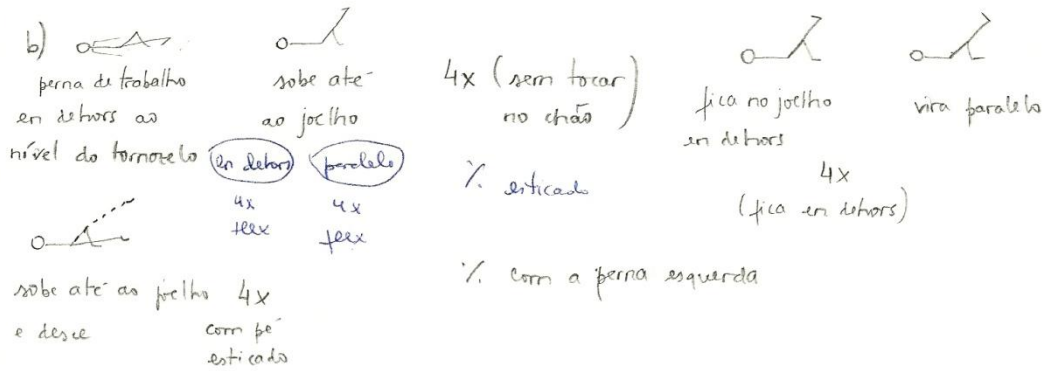 b)
perna de trabalho
en dehors ao
nível do tornozelo
sobe até
ao joelho
en dehors
4x
flex
paralelo
4x
flex
4x (sem tocar
no chão)
% esticado
fica no joelho
en dehors
vira paralelo
4x
(fica en dehors)
sobe até ao joelho
e desce
4x
com pé
esticado
% com a perna esquerda